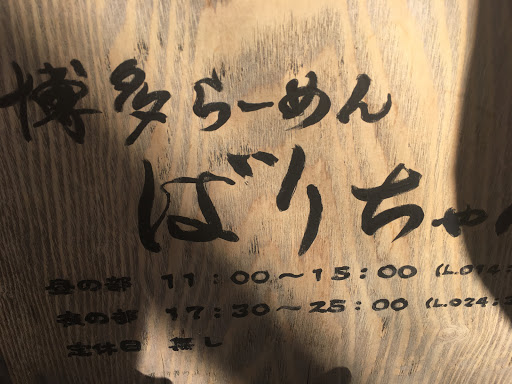 博多らーめん
ばりちゃん
昼の部 11:00〜15:00 (L.O14:
夜の部 17:30〜25:00 (L.O24:
定休日 無し